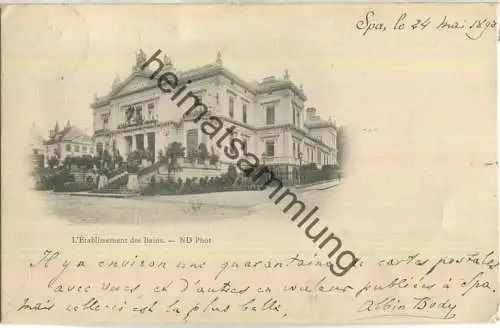 Spa, le 24 mai 189
heimatsammlung.de
L'Établissement des Bains. — ND Phot
Il y a environ une quarantaine de cartes postales
avec vues, et d'autres en valeurs publiées à Spa.
Mais celle-ci est la plus belle. Albin Body